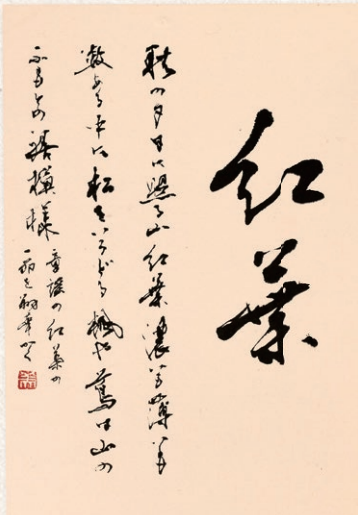 紅葉
秋の夕日に照る山紅葉濃いも薄いも
数ある中に松をいろどる楓や蔦は山の
ふもとの裾模様
童謡の紅葉の
一節を